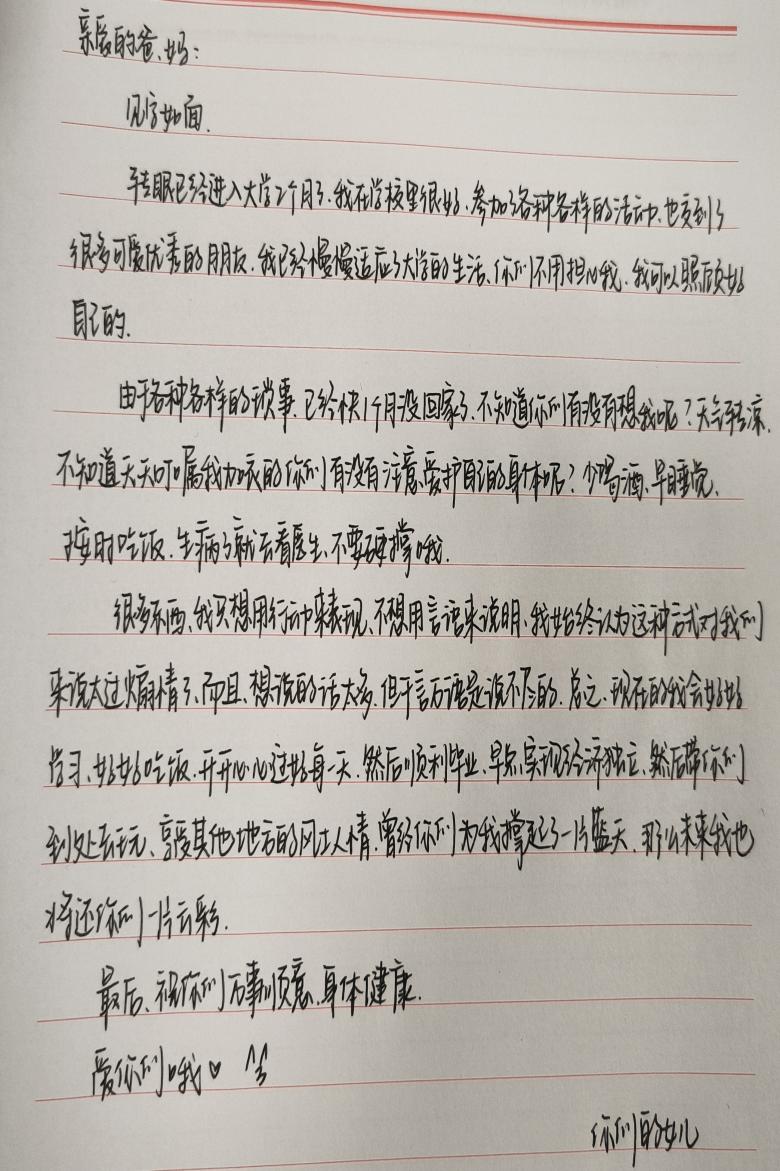 亲爱的爸、妈:
见字如面.
转眼已经进入大学2个月了,我在学校里很好,参加了各种各样的活动,也交到了
很多可爱优秀的朋友,我已经慢慢适应了大学的生活、你们不用担心我,我可以照顾好
自己的.
由于各种各样的琐事,已经快1个月没回家了,不知道你们有没有想我呢?天气转凉,
不知道天天叮嘱我加衣的你们有没有注意爱护自己的身体呢?少喝酒、早睡觉,
按时吃饭,生病了就去看医生,不要硬撑哦.
很多东西,我只想用行动来表现、不想用言语来说明、我始终认为这种方式对我们
来说太过煽情了、而且,想说的话太多,但千言万语是说不尽的.总之,现在的我会好好
学习、好好吃饭,开开心心过好每一天,然后顺利毕业、早点实现经济独立、然后带你们
到处去玩、享受其他地方的风土人情,曾经你们为我撑起了一片蓝天,那么未来我也
将还你们一片云彩.
最后、祝你们万事顺意、身体健康.
爱你们哦♡ ^^
你们的女儿